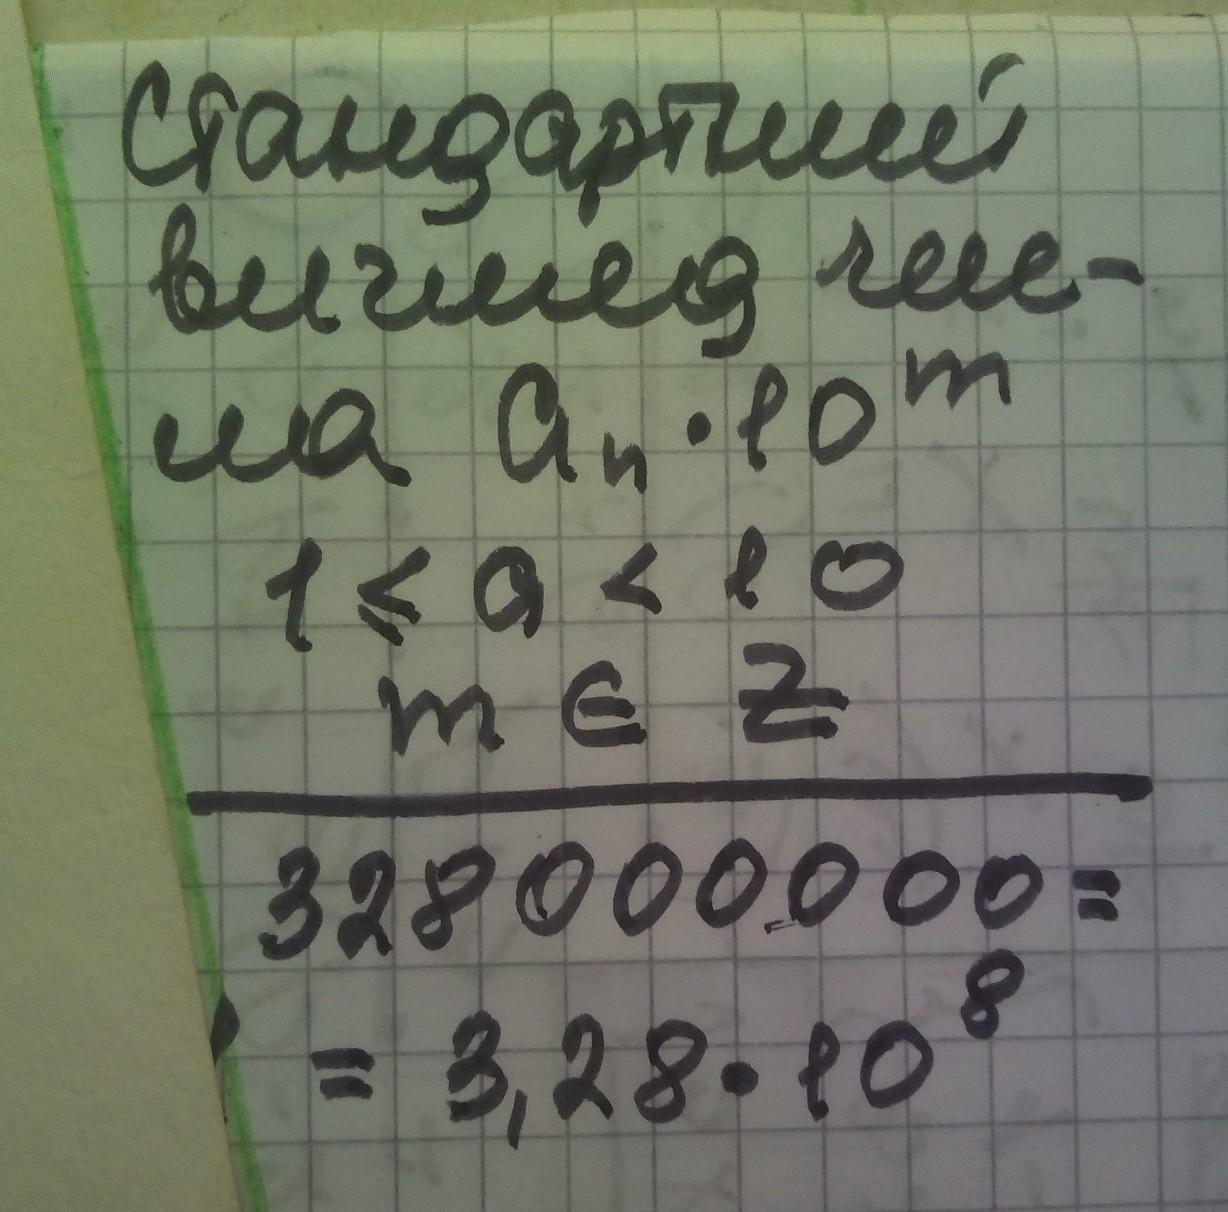 Стандартний
вигляд чис-
ла aₙ · 10ᵐ
1 ≤ a < 10
m ∈ Z
328000000 =
= 3,28 · 10⁸